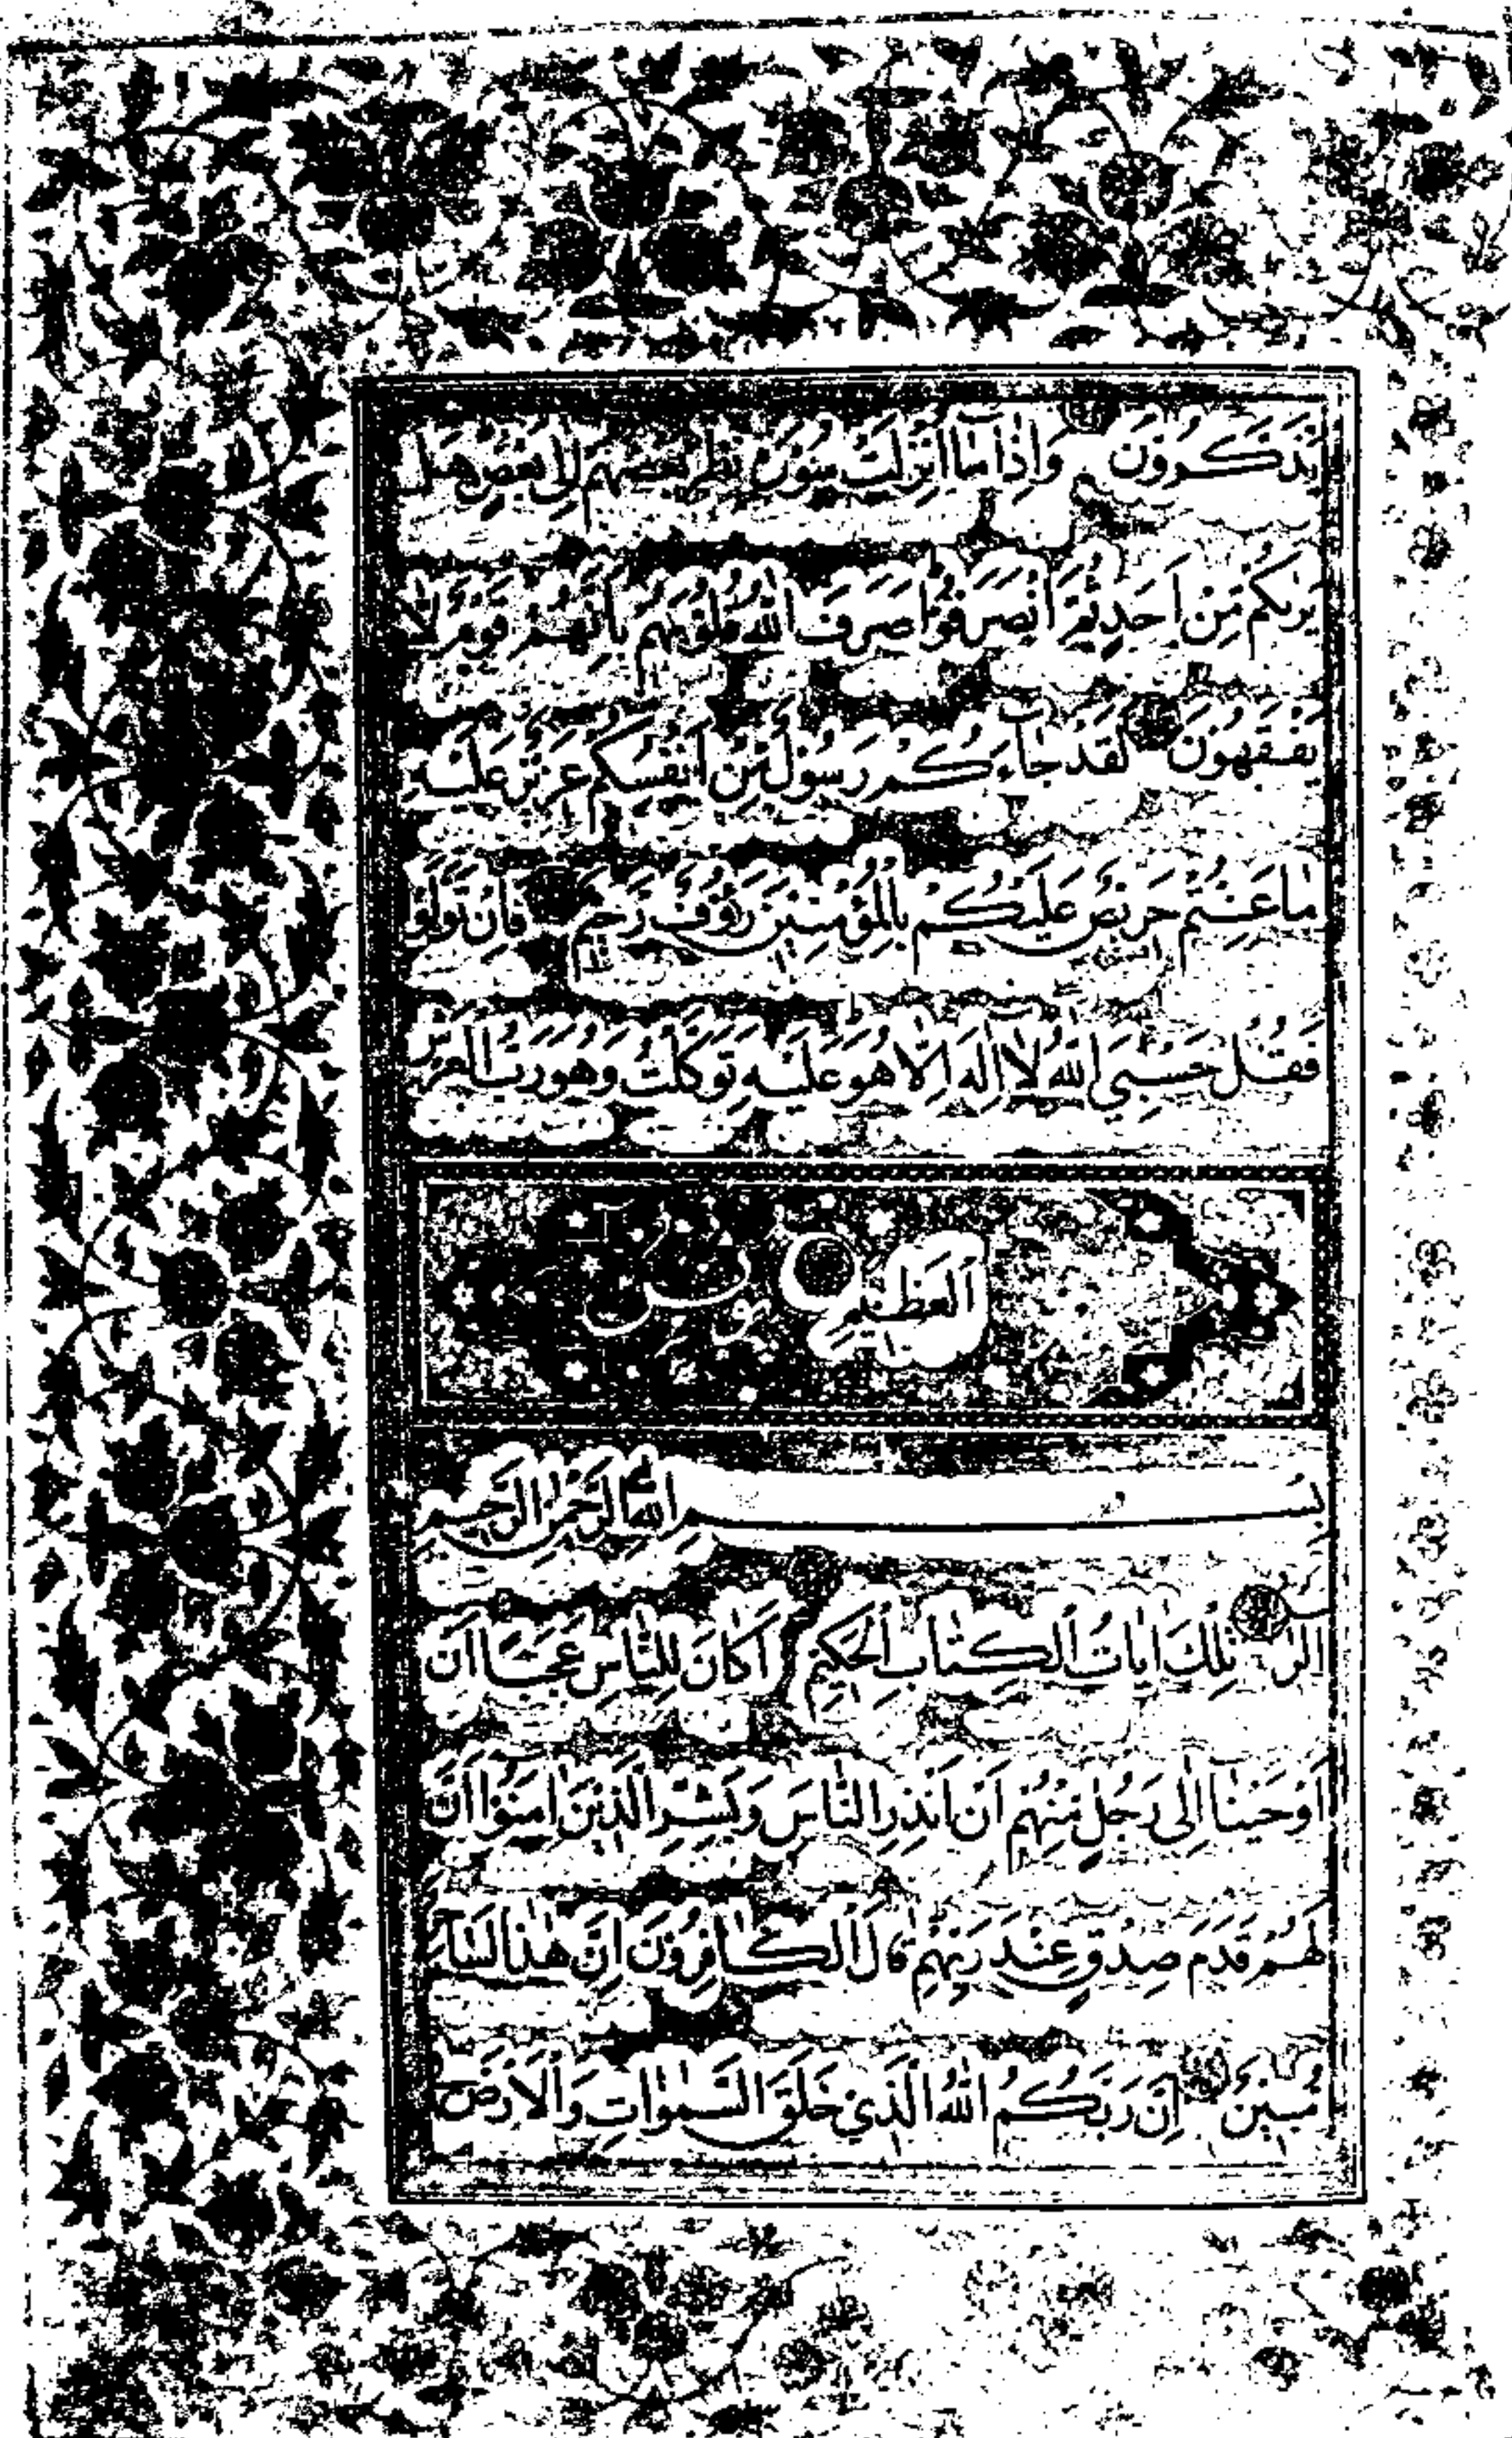 يَذَّكَّرُونَ وَإِذَا مَا أُنْزِلَتْ سُورَةٌ نَظَرَ بَعْضُهُمْ إِلَى بَعْضٍ هَلْ
يَرٰىكُمْ مِنْ أَحَدٍ ثُمَّ انْصَرَفُوا صَرَفَ اللّٰهُ قُلُوبَهُمْ بِأَنَّهُمْ قَوْمٌ لَا
يَفْقَهُونَ لَقَدْ جَاءَكُمْ رَسُولٌ مِنْ أَنْفُسِكُمْ عَزِيزٌ عَلَيْهِ
مَا عَنِتُّمْ حَرِيصٌ عَلَيْكُمْ بِالْمُؤْمِنِينَ رَؤُوفٌ رَحِيمٌ فَإِنْ تَوَلَّوْا
فَقُلْ حَسْبِيَ اللّٰهُ لَا إِلٰهَ إِلَّا هُوَ عَلَيْهِ تَوَكَّلْتُ وَهُوَ رَبُّ الْعَرْشِ
الْعَظِيمِ يونس
بِسْمِ اللّٰهِ الرَّحْمٰنِ الرَّحِيمِ
الٓرٰ تِلْكَ اٰيَاتُ الْكِتَابِ الْحَكِيمِ أَكَانَ لِلنَّاسِ عَجَبًا أَنْ
أَوْحَيْنَا إِلٰى رَجُلٍ مِنْهُمْ أَنْ أَنْذِرِ النَّاسَ وَبَشِّرِ الَّذِينَ اٰمَنُوا أَنَّ
لَهُمْ قَدَمَ صِدْقٍ عِنْدَ رَبِّهِمْ قَالَ الْكَافِرُونَ إِنَّ هٰذَا لَسَاحِرٌ
مُبِينٌ إِنَّ رَبَّكُمُ اللّٰهُ الَّذِي خَلَقَ السَّمٰوَاتِ وَالْأَرْضَ